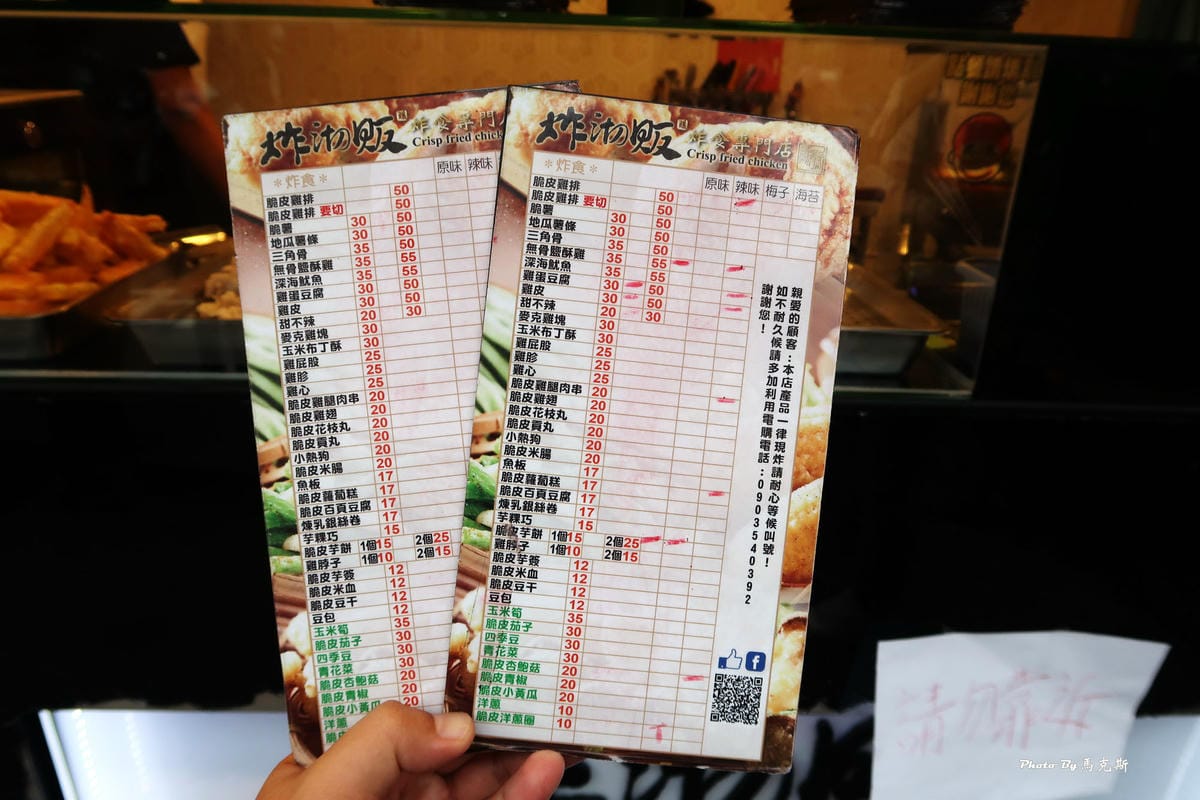 炸沏の販
炸食專門
Crisp fried chick
*炸食*
原味 辣味
脆皮雞排 50
脆皮雞排 要切 50
脆薯 30 50
地瓜薯條 30 50
三角骨 35 50
無骨鹽酥雞 35 55
深海魷魚 35 55
雞蛋豆腐 30 50
雞皮 30 50
甜不辣 20 30
麥克雞塊 30
玉米布丁酥 30
雞屁股 25
雞胗 25
雞心 25
脆皮雞腿肉串 20
脆皮雞翅 20
脆皮花枝丸 20
脆皮貢丸 20
小熱狗 20
脆皮米腸 20
魚板 17
脆皮蘿蔔糕 17
脆皮百頁豆腐 17
煉乳銀絲卷 17
芋粿巧 15
脆皮芋餅 1個15 2個25
雞脖子 1個10 2個15
脆皮芋簽 12
脆皮米血 12
脆皮豆干 12
豆包 12
玉米筍 35
脆皮茄子 30
四季豆 30
青花菜 30
脆皮杏鮑菇 30
脆皮青椒 20
脆皮小黃瓜 20
洋蔥
炸沏の販
炸食專門店
Crisp fried chicken
*炸食*
原味 辣味 梅子 海苔
脆皮雞排 50
脆皮雞排 要切 50
脆薯 30 50
地瓜薯條 30 50
三角骨 35 50
無骨鹽酥雞 35 55
深海魷魚 35 55
雞蛋豆腐 30 50
雞皮 30 50
甜不辣 20 30
麥克雞塊 30
玉米布丁酥 30
雞屁股 25
雞胗 25
雞心 25
脆皮雞腿肉串 20
脆皮雞翅 20
脆皮花枝丸 20
脆皮貢丸 20
小熱狗 20
脆皮米腸 20
魚板 17
脆皮蘿蔔糕 17
脆皮百頁豆腐 17
煉乳銀絲卷 17
芋粿巧 15
脆皮芋餅 1個15 2個25
雞脖子 1個10 2個15
脆皮芋簽 12
脆皮米血 12
脆皮豆干 12
豆包 12
玉米筍 35
脆皮茄子 30
四季豆 30
青花菜 30
脆皮杏鮑菇 30
脆皮青椒 20
脆皮小黃瓜 20
洋蔥 10
脆皮洋蔥圈 10
親愛的顧客:本店產品一律現炸請耐心等候叫號!
如不耐久候請多加利用電購電話:0903540392
謝謝您!
請勿
Photo By 馬克斯